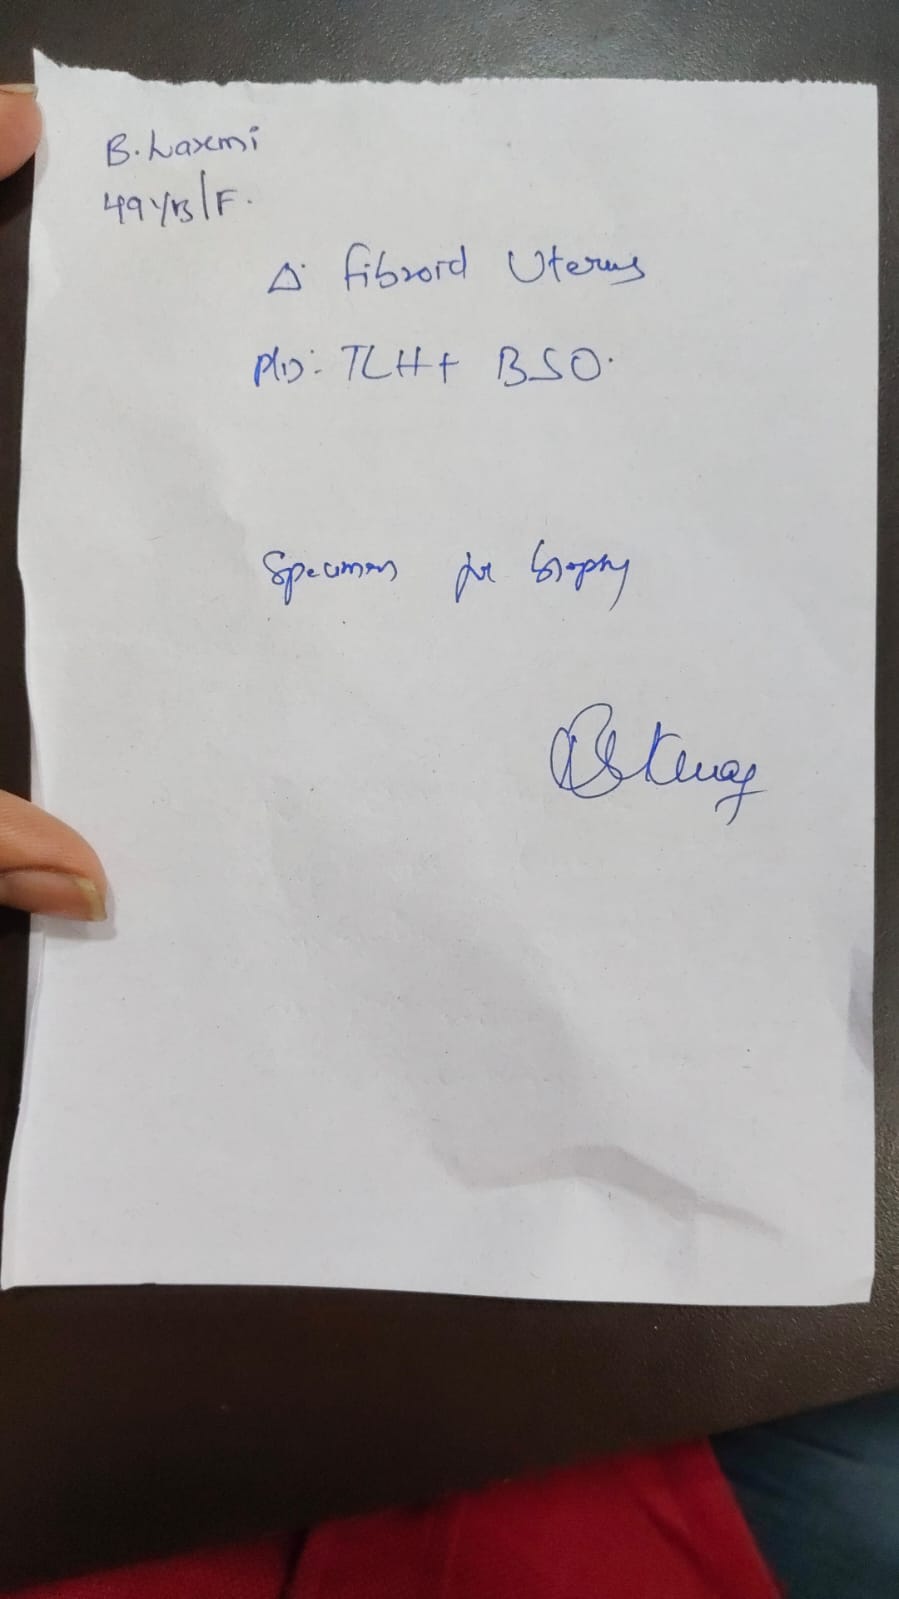 B. Laxmi
49 Yrs/F.
Δ: fibroid Uterus
TLH + BSO.
Specimen for biopsy